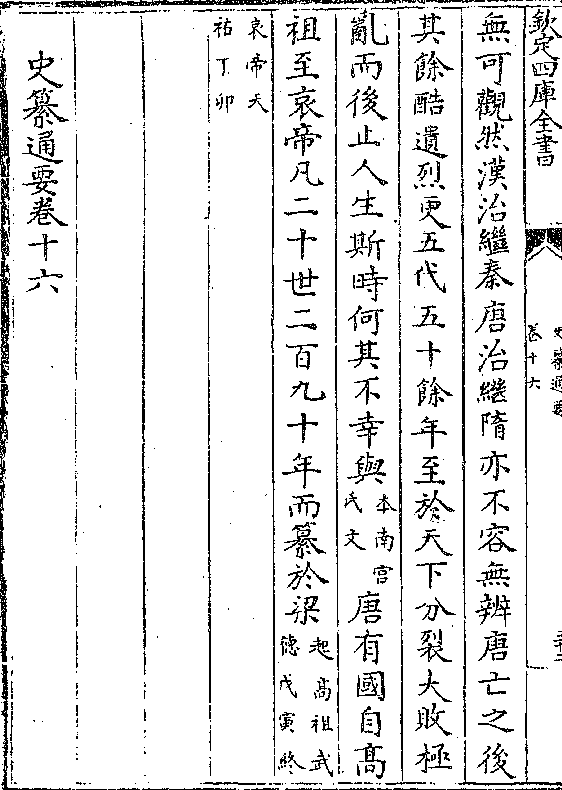 欽定四庫全書
史纂通要
卷十六
無可觀然漢治繼秦唐治繼隋亦不容無辨唐亡之後
其餘酷遺烈更五代五十餘年至於天下分裂大敗極
亂而後止人生斯時何其不幸與本南宫氏文唐有國自髙
祖至哀帝凡二十世二百九十年而纂於梁起髙祖武德戊寅終
哀帝天祐丁卯
史纂通要卷十六